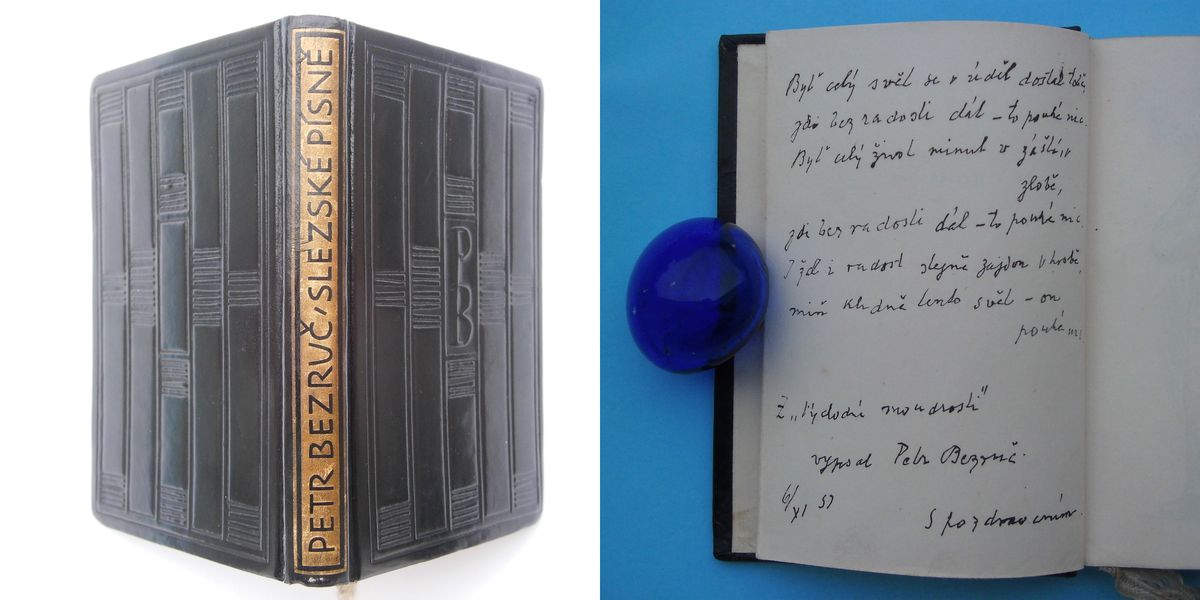 PETR BEZRUČ, SLEZSKÉ PÍSNĚ
PB
Byť celý svět se v úděl dostal
žít bez radosti dál – to pouhé nic.
Byť celý život minul v záští, v
zlobě,
žít bez radosti dál – to pouhé nic.
I žal i radost stejně zajdou v hrobě,
miň klidně tento svět – on
pouhé nic
Z „Východní moudrosti"
vypsal Petr Bezruč.
6/XI 53
S pozdravením.